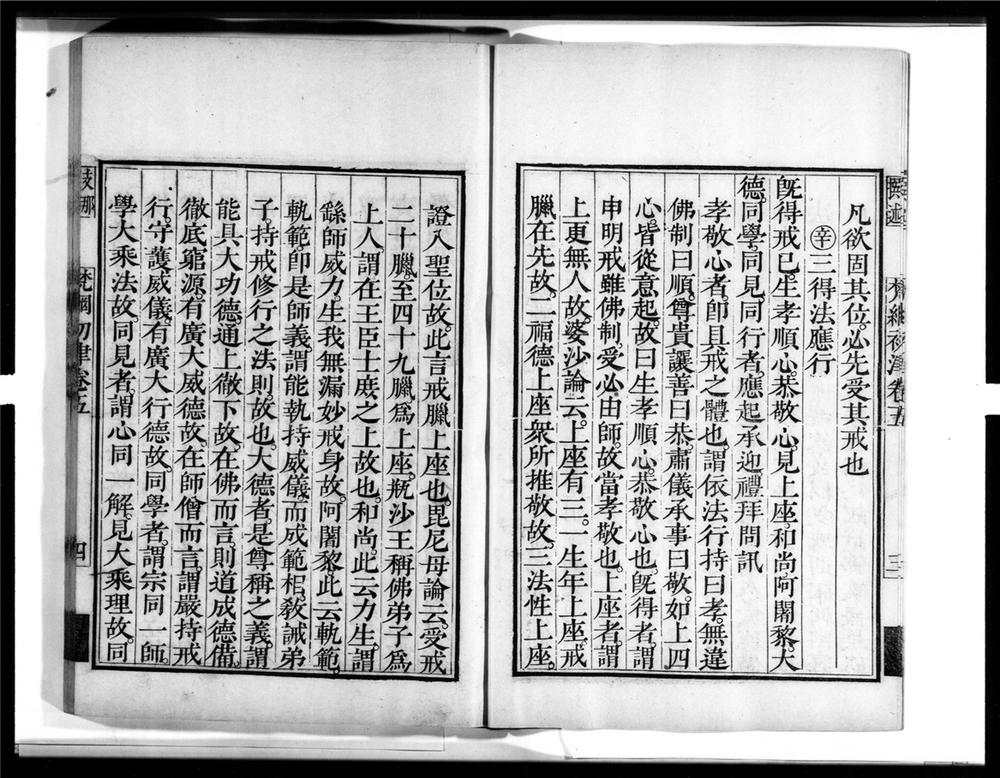 凡欲固其位。必先受其戒也
㊛三得法應行
旣得戒已。生孝順心。恭敬心。見上座。和尚阿闍黎。大
德。同學。同見。同行者。應起承迎。禮拜問訊
孝敬心者。卽具戒之體也。謂依法行持曰孝。無違
佛制曰順。尊貴讓善曰恭。肅儀承事曰敬。如上四
心。皆從意起。故曰生孝順心。恭敬心也。旣得者。謂
申明戒雖佛制。受必由師。故當孝敬也。上座者。謂
上更無人故。婆沙論云。上座有三。一生年上座。戒
臘在先故。二福德上座。衆所推敬故。三法性上座。
梵網初津卷五
三
證入聖位故。此言戒臘上座也。毘尼母論云。受戒
二十臘。至四十九臘爲上座。瓶沙王稱佛弟子爲
上人。謂在王臣士庶之上故也。和尚。此云力生。謂
繇師威力。生我無漏妙戒身故。阿闍黎此云軌範。
軌範。卽是師義。謂能執持威儀。而成範柤。教誡弟
子。持戒修行之法則。故也。大德者。是尊稱之義。謂
能具大功德。通上徹下故。在佛而言。則道成德備。
徹底窮源。有廣大威德故。在師僧而言。謂嚴持戒
行。守護威儀。有廣大行德故。同學者。謂宗同一師。
學大乘法故。同見者。謂心同一解。見大乘理故。同
支那
梵網初津卷五
四